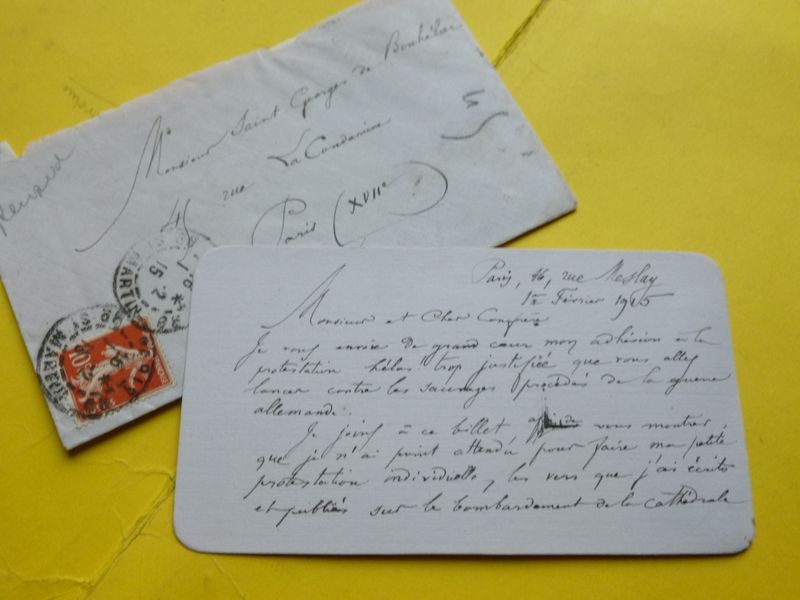 Renard
Monsieur Saint Georges de Bouhélier
rue La Condamine
Paris (XVIIe)
MARTIN
10
Paris, 46, rue Meslay
1er Février 1915
Monsieur et Cher Confrère
Je vous envoie de grand cœur mon adhésion à la
protestation hélas trop justifiée que vous allez
lancer contre les sauvages procédés de la guerre
allemande.
Je joins à ce billet afin de vous montrer
que je n'ai point attendu pour faire ma petite
protestation individuelle, les vers que j'ai écrits
et publiés sur le bombardement de la cathédrale